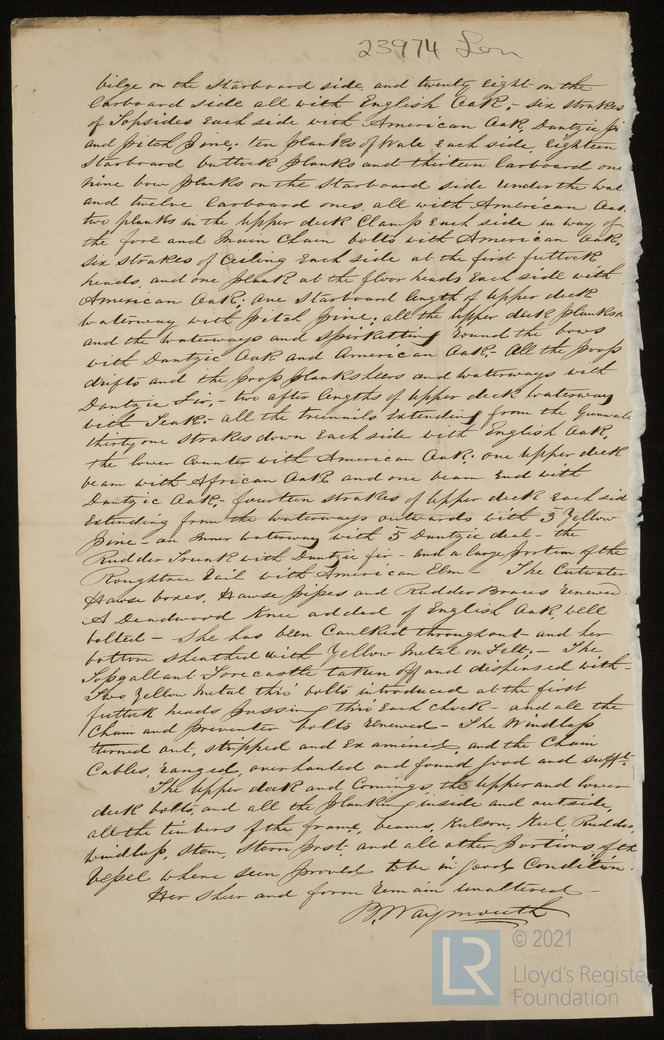 23974 Lon
bilge on the Starboard side, and twenty eight on the
Larboard side all with English Oak,- six strakes
of Topsides Each side with American Oak, Dantzic Fir
and pitch Pine; ten planks of Wale Each side, Eighteen
Starboard buttock planks and thirteen Larboard one
nine bow planks on the Starboard side under the Wal
and twelve Larboard ones, all with American Oak.
two planks in the upper deck Clamp Each side in way of
the fore and Main Chain bolts with American Oak,
six strakes of Ceiling Each side at the first futtock
heads, and one plank at the floor heads Each side with
American Oak; one Starboard length of upper deck
waterway with pitch pine; all the upper deck planks
and the waterways and Spirketting round the bows
with Dantzic Oak and American Oak,- All the poop
drifts and the poop planksheers and waterways with
Dantzic Fir,- two after lengths of upper deck waterway
with Teak:- all the treenails Extending from the Gunwale
thirty one strakes down Each side with English Oak,
the lower Counter with American Oak; one upper deck
beam with African Oak and one beam End with
Dantzic Oak,- fourteen strakes of upper deck Each side
Extending from the waterways outwards with 3 Yellow
pine - an Inner waterway with 5 Dantzic deal - the
Rudder Trunk with Dantzic fir - and a large portion of the
Roughtree Rail with American Elm - The Cutwater
Hawse boxes, Hawse pipes and Rudder Braces renewed
A Deadwood Knee added of English Oak, well
bolted - She has been Caulked throughout and her
bottom sheathed with Yellow Metal on Felt,- The
Topgallant Forecastle taken off and dispensed with -
Two Yellow Metal thro' bolts introduced at the first
futtock heads passing thro' Each Chock - and all the
Chain and preventer bolts renewed - The Windlass
turned out, stripped and Examined, and the Chain
Cables, ranged, overhauled and found good and sufft.
The upper deck and Comings, the upper and lower
deck bolts, and all the planking inside and outside,
all the timbers of the frame, beams, Kelson, Keel Rudder,
windlass, Stem, Stern post, and all other portions of the
Vessel where seen proved to be in good Condition.
Her Sheer and form remain unaltered -
B. Waymouth
LR © 2021
Lloyd's Register
Foundation